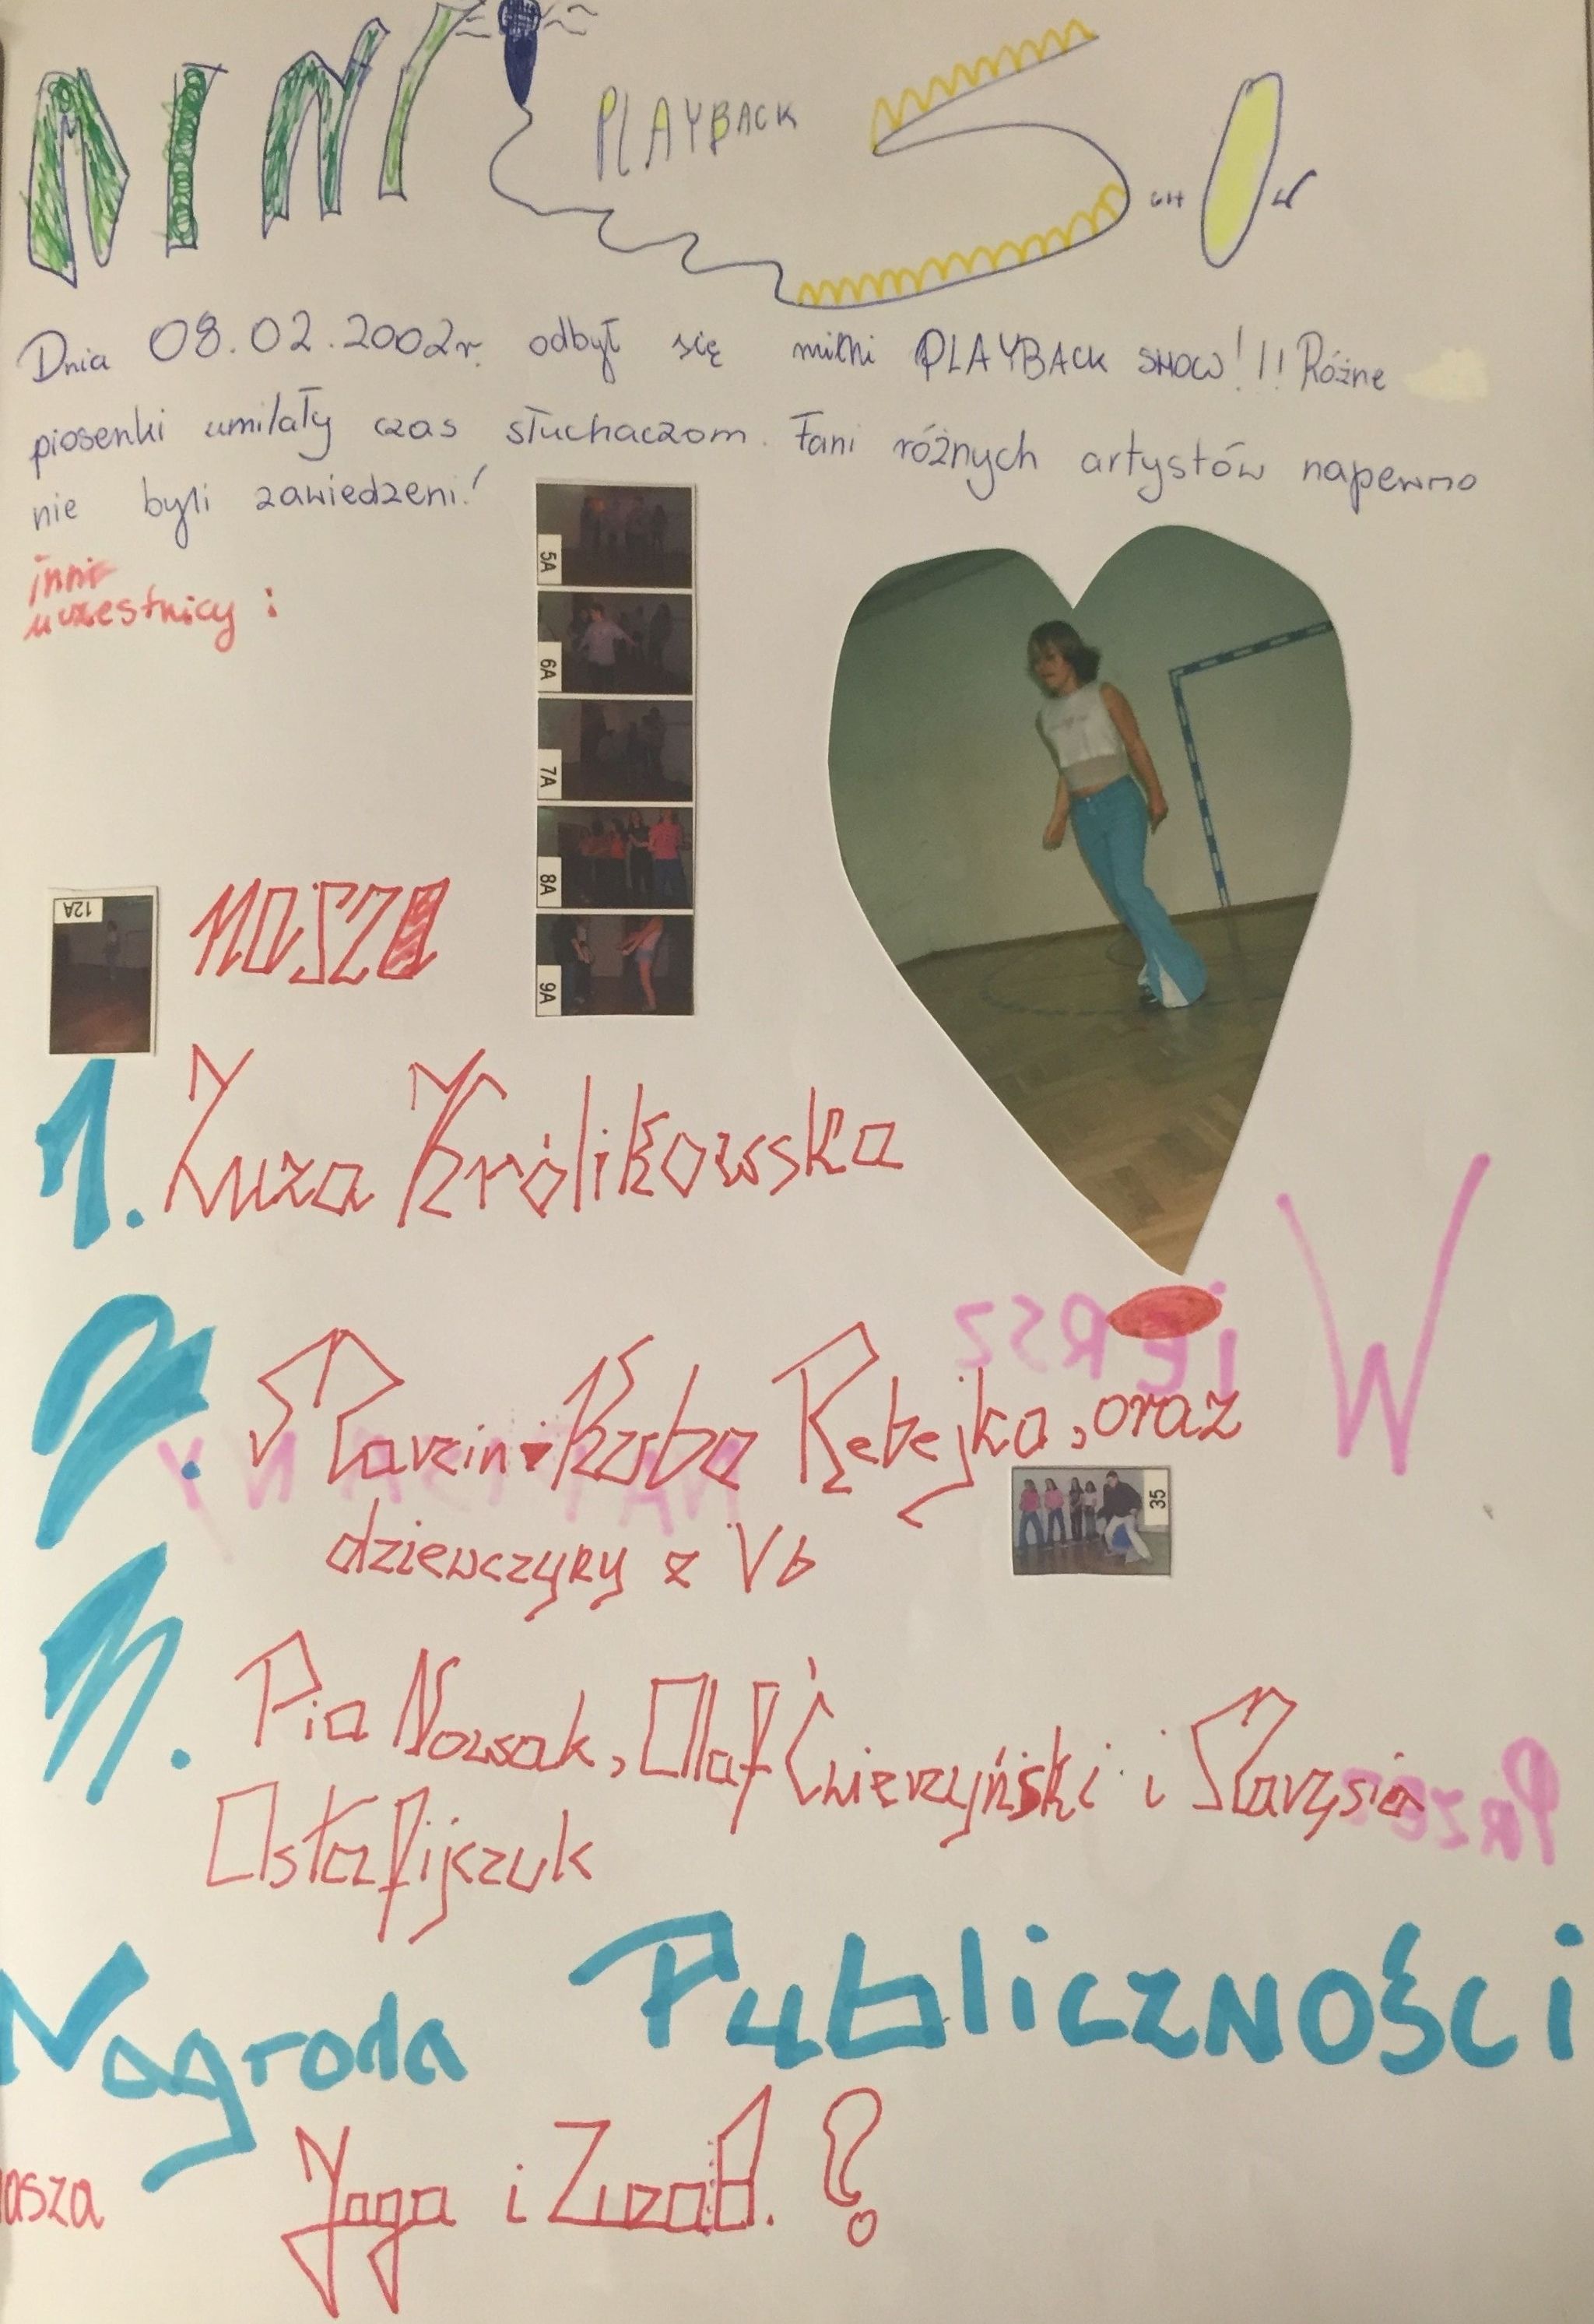 MINI PLAYBACK SHOW
Dnia 08.02.2002r. odbył się mini PLAYBACK SHOW!!! Różne
piosenki umilały czas słuchaczom. Fani różnych artystów napewno
nie byli zawiedzeni!
inni
uczestnicy :
5A
6A
7A
8A
9A
12A
nasza
1. Zuza Królikowska
2. Marcin i Kuba Rębejko, oraz
dziewczyny z Vb
35
3. Pia Nowak, Olaf Ćwierzyński i Marysia
Ostafijczuk
Nagroda Publiczności
asza Jaga i Zuza B. ?
W
iERSZ
NAPISANY
PRZEZ